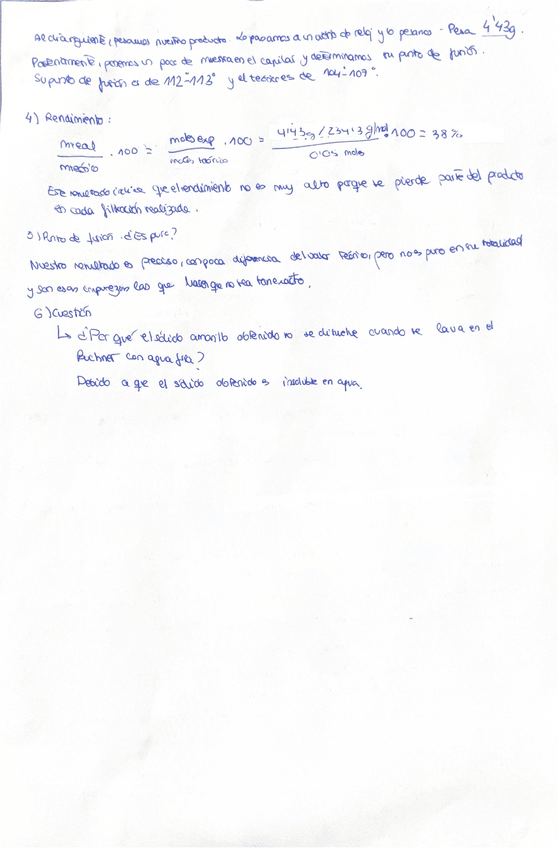 Al día siguiente, pesamos nuestro producto. Lo pasamos a un vidrio de reloj y lo pesamos - Pesa 4'43g.
Posteriormente, ponemos un poco de muestra en el capilar y determinamos su punto de fusión.
Su punto de fusión es de 112º-113º y el teórico es de 104º-109º.
4) Rendimiento:
mreal / mteórico · 100 = moles exp / moles teórico · 100 = 4'43g / 234'3 g/mol / 0'05 moles · 100 = 38%
Este resultado indica que el rendimiento no es muy alto porque se pierde parte del producto
en cada filtración realizada.
5) Punto de fusión. ¿Es puro?
Nuestro resultado es preciso, con poca diferencia del valor teórico, pero no es puro en su totalidad
y son esas impurezas las que hacen que no sea tan exacto.
6) Cuestión
↳ ¿Por qué el sólido amarillo obtenido no se disuelve cuando se lava en el
Buchner con agua fría?
Debido a que el sólido obtenido es insoluble en agua.